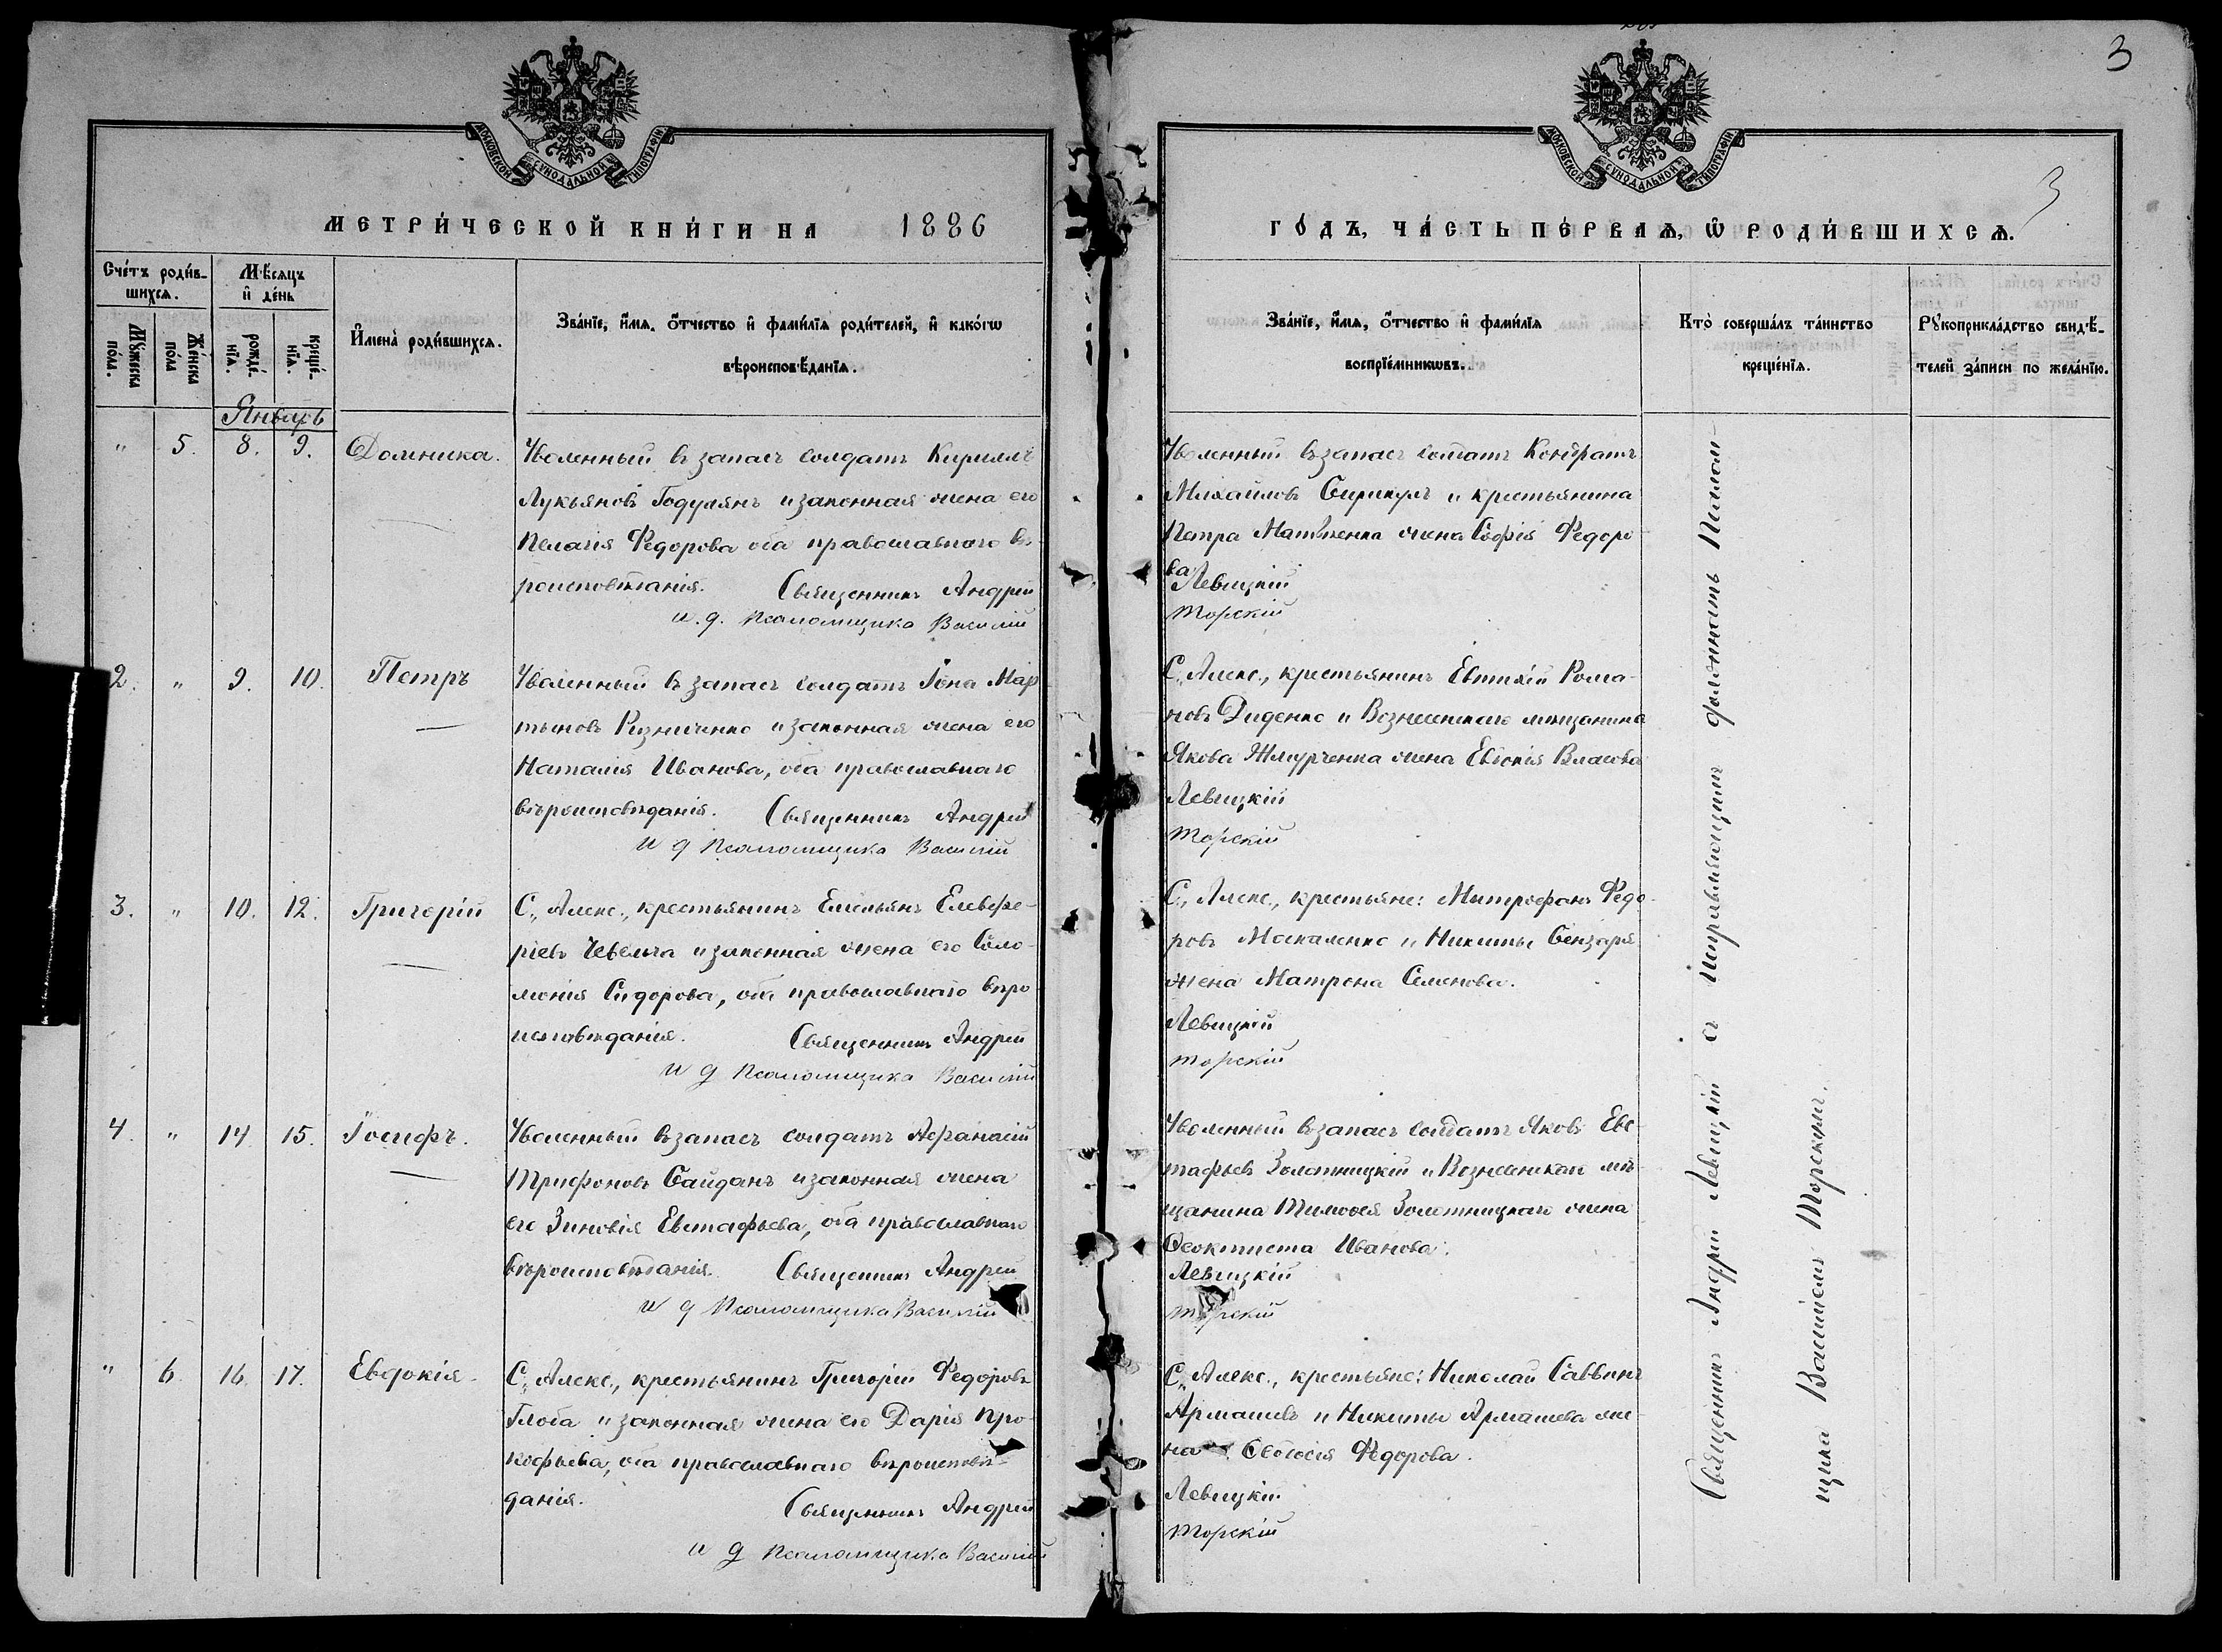 3
МОСКОВСКОЙ СУНОДАЛЬНОЙ ТИПОГРАФІИ
МОСКОВСКОЙ СУНОДАЛЬНОЙ ТИПОГРАФІИ
3
МЕТРИ́ЧЕСКОЙ КНИ́ГИ НА 1886
ГО́ДЪ, ЧА́СТЬ ПЕ́РВАѦ, Ѿ РОДИ́ВШИХСѦ.
Сче́тъ роди́в-
шихсѧ.
Мꙋжеска по́ла.
Же́нска по́ла
Мѣ́сяцъ
и҆ де́нь
рожде́-
нїѧ.
креще́-
нїѧ.
И҆мена̀ роди́вшихсѧ.
Зва́нїе, и҆́мѧ, ѻ҆́тчество и҆ фами́лїѧ роди́телей, и҆ како́гѡ
вѣроисповѣ́данїѧ.
Зва́нїе, и҆́мѧ, ѻ҆́тчество и҆ фами́лїѧ
воспрїе́мникѡвъ.
Кто̀ соверша́лъ та́инство
креще́нїѧ.
Рꙋкоприкла́дство свидѣ́-
телей за́писи по жела́нїю.
Январь
" 5. 8. 9. Домника.
Уволенный въ запасъ солдатъ Кириллъ
Лукьяновъ Годулянъ и законная жена его
Пелагія Федорова оба православнаго вѣ-
роисповѣданія. Священникъ Андрей
и. д. Псаломщика Василій
Уволенный въ запасъ солдатъ Кондратъ
Михайловъ и крестьянина
Петра Матвѣенка жена Софія Федоро-
ва
Левицкій
Торскій
2. " 9. 10. Петръ
Уволенный въ запасъ солдатъ Іона Мар
тыновъ Резниченко и законная жена его
Наталія Иванова, оба православнаго
вѣроисповѣданія. Священникъ Андрей
и д Псаломщика Василій
С. Алекс., крестьянинъ Евтихій Рома-
новъ Диденко и Вознесенскаго мѣщанина
Якова Жмурченка жена Евгенія Власова
Левицкій
Торскій
3. " 10. 12. Григорій
С., Алекс., крестьянинъ Емельянъ Елевфе-
ріевъ Чевельча и законная жена его Соло-
монія Сидорова, оба православнаго вѣро
исповѣданія. Священникъ Андрей
и д Псаломщика Василій
С., Алекс., крестьяне: Митрофанъ Федо-
ровъ Москаленко и Никиты Бензаря
жена Матрена Семенова.
Левицкій
Торскій
4. " 14 15. Іосифъ.
Уволенный въ запасъ солдатъ Афанасій
Трифоновъ Сайданъ и законная жена
его Зиновія Евстафьева, оба православнаго
вѣроисповѣданія. Священникъ Андрей
и д Псаломщика Василій
Уволенный въ запасъ солдатъ Яковъ Евс-
тафьевъ Золотницкій и Вознесенскаго мѣ-
щанина Тимофея Золотницкаго жена
Феоктиста Иванова.
Левицкій
Торскій
" 6. 16. 17. Евдокія.
С., Алекс., крестьянинъ Григорій Федоровъ
Глоба и законная жена его Дарія Про-
кофьева, оба православнаго вѣроисповѣ-
данія. Священникъ Андрей
и д Псаломщика Василій
С., Алекс., крестьяне: Николай Саввинъ
Армашевъ и Никиты Армашева же-
на Феодосія Федорова.
Левицкій
Торскій
Священникъ Андрей Левицкій съ Исправляющимъ должность Псалом-
щика Василіемъ Торскимъ.